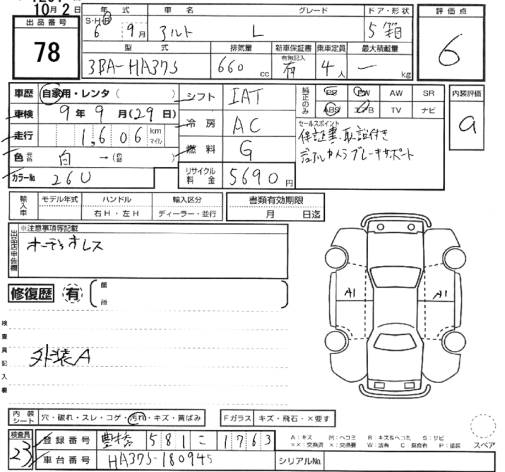 10月2日
出品番号
78
S・H・R 年式 車名 グレード ドア・形状
6年 9月 アルト L 5 箱
型式 排気量 新車保証書 乗車定員 最大積載量
3BA-HA37S 660cc 有 4人 — kg
評価点
6
車歴 自家用・レンタ( )
車検 9年 9月(29日)
走行 1,606 km マイル
色 白 →( )
カラーNo 26U
シフト IAT
冷房 AC
燃料 G
リサイクル料金 5690円
純正のみ
PS PW AW SR
ABS エアB TV ナビ
セールスポイント
保証書、取説付き
デュアルカメラブレーキサポート
内装評価
a
輸入車 モデル年式 ハンドル 輸入区分
年 右H・左H ディーラー・並行
書類有効期限
月 日迄
※注意事項等記載
オーディオレス
修復歴 有 箇所
検査員記入欄
外装A
A1 A1
内装シート 穴・破れ・スレ・コゲ・汚れ・キズ・黄ばみ
Fガラス キズ・飛石・×要す
スペア
検査員
23
登録番号 豊橋 581 こ 1763
車台番号 HA37S-180945
シリアルNo.
A:キズ M:ヘコミ B:キズ&ヘコミ S:サビ
××:交換済 X:交換要 W:波有 C:腐食 P:塗装